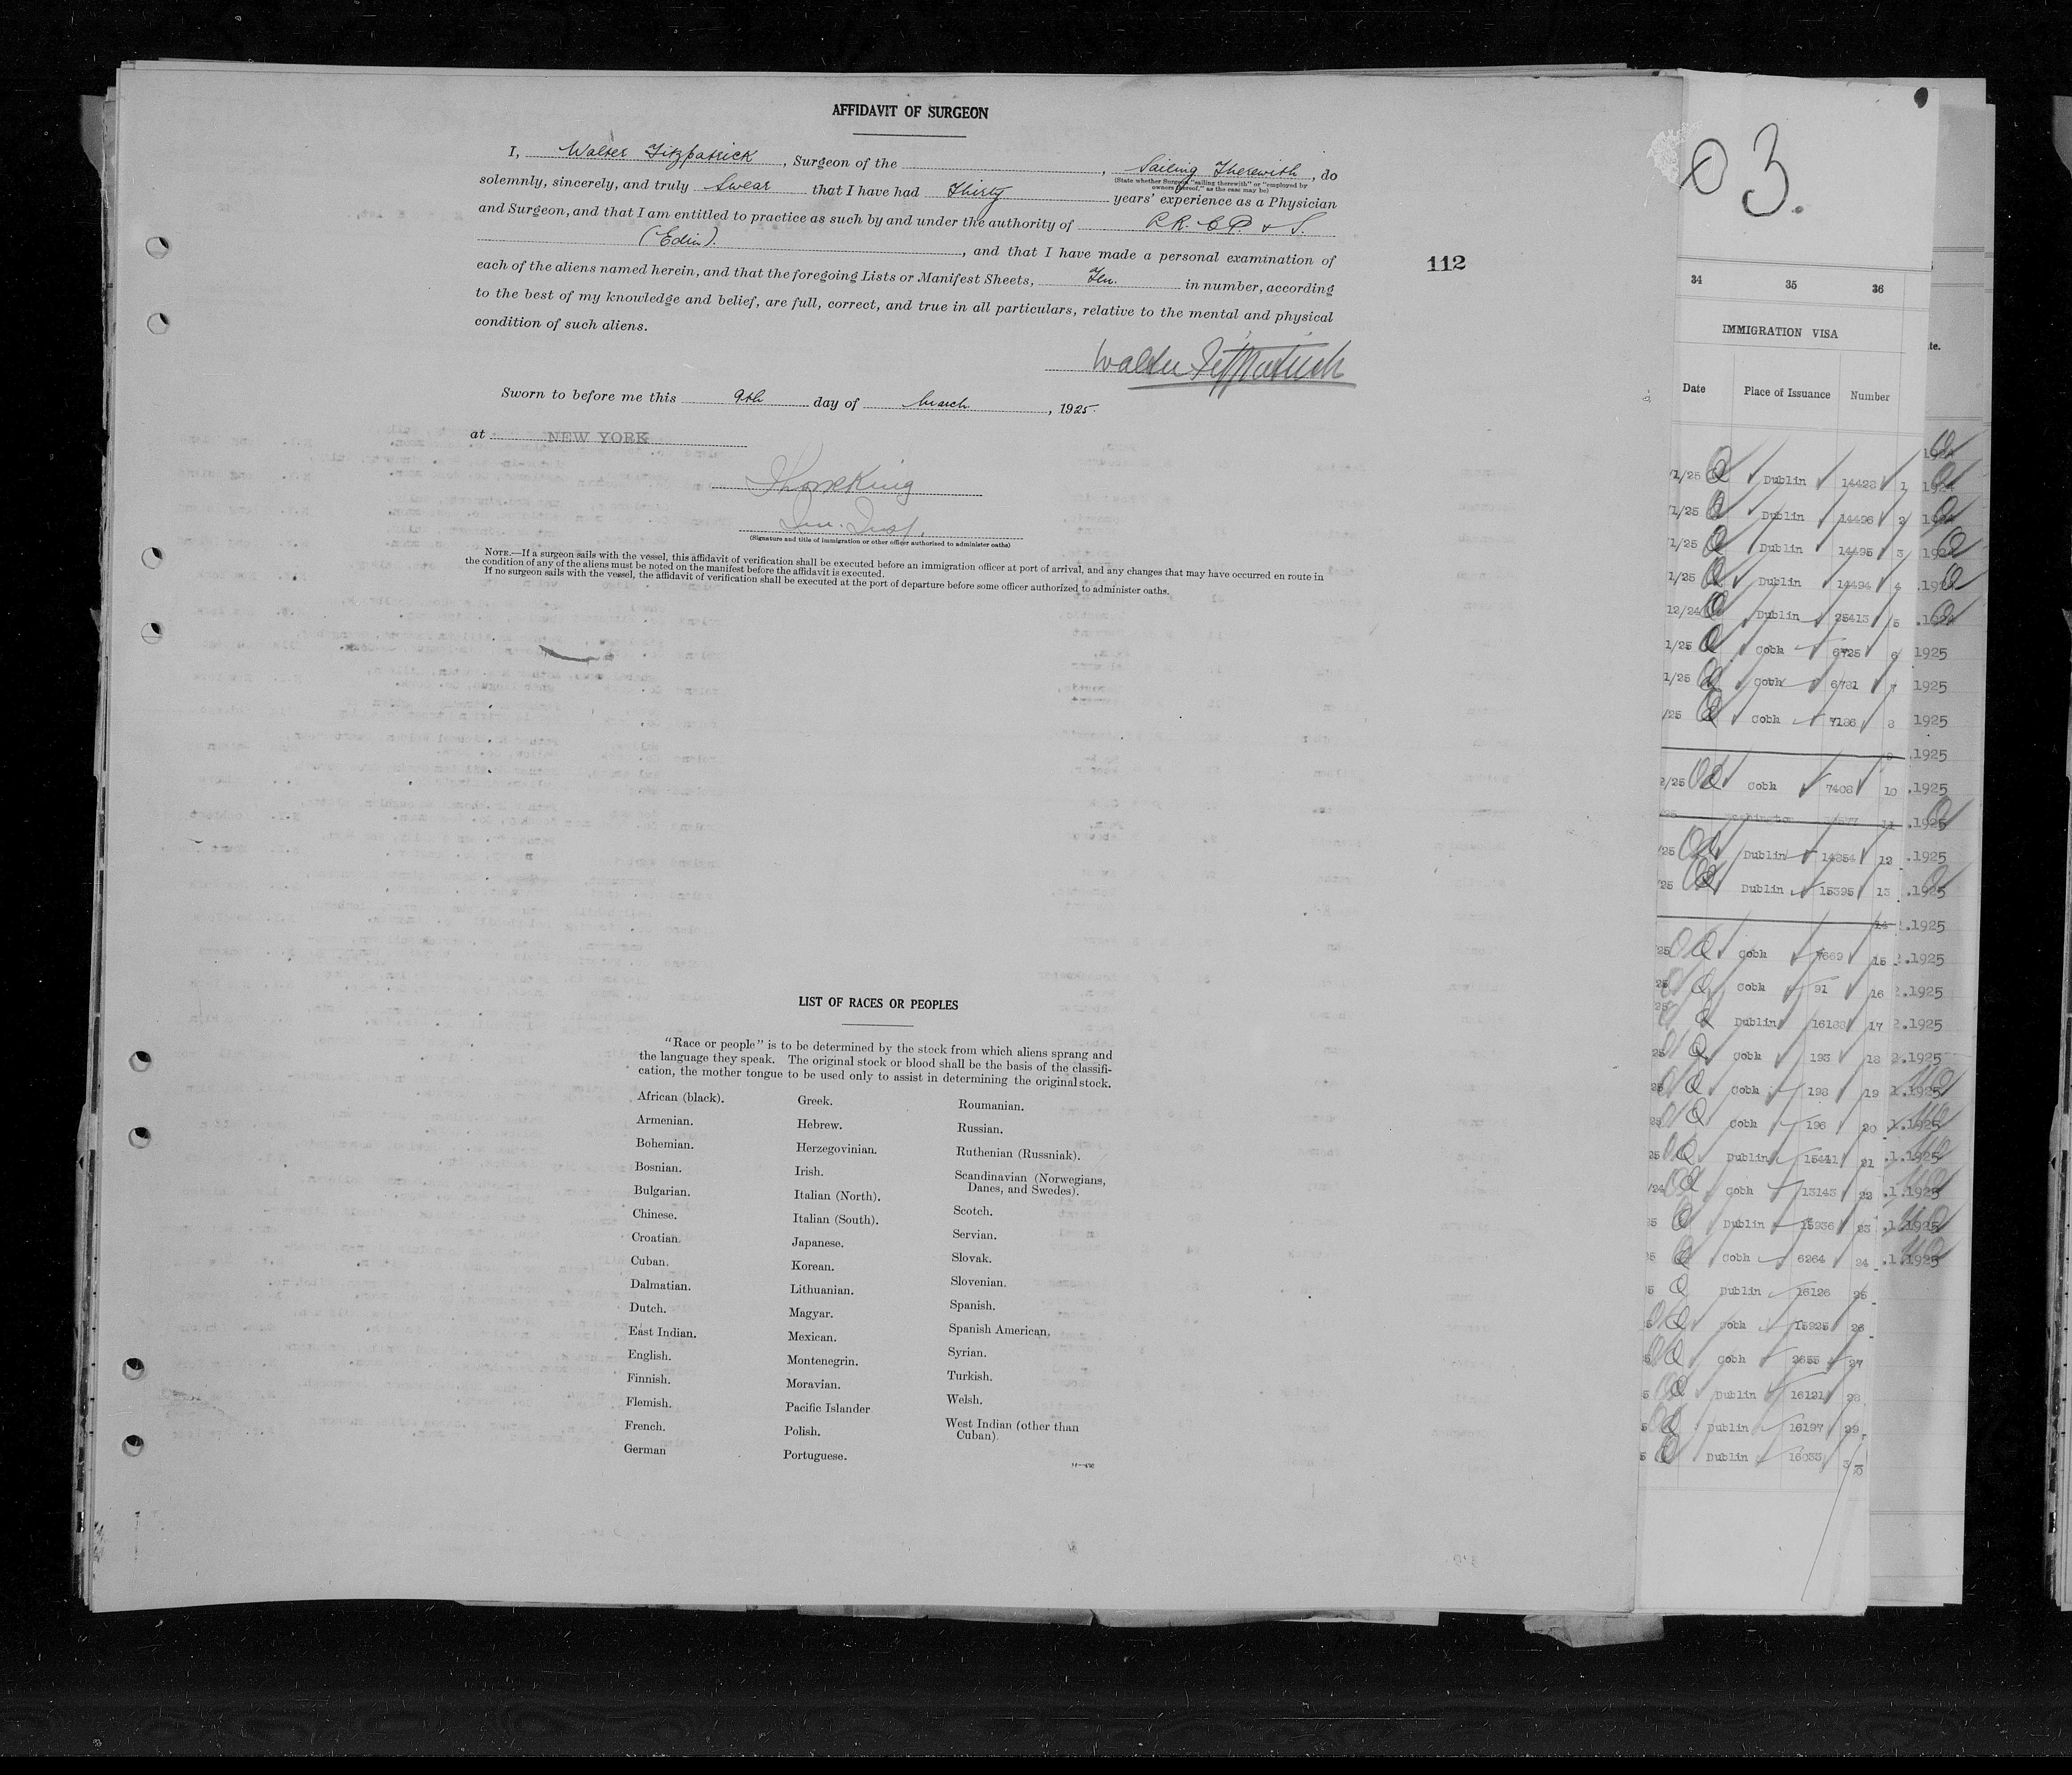 AFFIDAVIT OF SURGEON
I, Walter Fitzpatrick, Surgeon of the , Sailing Therewith, do
(State whether Surgeon "sailing therewith" or "employed by
owners thereof," as the case may be)
solemnly, sincerely, and truly Swear that I have had Thirty years' experience as a Physician
and Surgeon, and that I am entitled to practice as such by and under the authority of L.R.C.P. & S.
(Edin). , and that I have made a personal examination of
each of the aliens named herein, and that the foregoing Lists or Manifest Sheets, Ten. in number, according
to the best of my knowledge and belief, are full, correct, and true in all particulars, relative to the mental and physical
condition of such aliens.
Walter Fitzpatrick
Sworn to before me this 9th day of March, 1925.
at NEW YORK
Imm. Insp.
(Signature and title of immigration or other officer authorized to administer oaths)
NOTE.—If a surgeon sails with the vessel, this affidavit of verification shall be executed before an immigration officer at port of arrival, and any changes that may have occurred en route in
the condition of any of the aliens must be noted on the manifest before the affidavit is executed.
If no surgeon sails with the vessel, the affidavit of verification shall be executed at the port of departure before some officer authorized to administer oaths.
112
LIST OF RACES OR PEOPLES
"Race or people" is to be determined by the stock from which aliens sprang and
the language they speak. The original stock or blood shall be the basis of the classifi-
cation, the mother tongue to be used only to assist in determining the original stock.
African (black).
Armenian.
Bohemian.
Bosnian.
Bulgarian.
Chinese.
Croatian.
Cuban.
Dalmatian.
Dutch.
East Indian.
English.
Finnish.
Flemish.
French.
German
Greek.
Hebrew.
Herzegovinian.
Irish.
Italian (North).
Italian (South).
Japanese.
Korean.
Lithuanian.
Magyar.
Mexican.
Montenegrin.
Moravian.
Pacific Islander
Polish.
Portuguese.
Roumanian.
Russian.
Ruthenian (Russniak).
Scandinavian (Norwegians,
Danes, and Swedes).
Scotch.
Servian.
Slovak.
Slovenian.
Spanish.
Spanish American.
Syrian.
Turkish.
Welsh.
West Indian (other than
Cuban).
03.
34 35 36
IMMIGRATION VISA
Date Place of Issuance Number
1/25 Dublin 14428 1
1/25 Dublin 14496 2
1/25 Dublin 14495 3
1/25 Dublin 14494 4
12/24 Dublin 25413 5
1/25 Cobh 6725 6
1/25 Cobh 6781 7
/25 Cobh 7186 8
9
2/25 Cobh 7408 10
11
/25 Dublin 14854 12
25 Dublin 15395 13
14
25 Cobh 7669 15
25 Cobh 91 16
25 Dublin 16188 17
25 Cobh 193 18
25 Cobh 198 19
25 Cobh 196 20
25 Dublin 15441 21
/24 Cobh 13143 22
5 Dublin 15936 23
5 Cobh 6264 24
5 Dublin 16126 25
5 Cobh 15925 26
5 Cobh 2655 27
5 Dublin 16121 28
5 Dublin 16197 29
5 Dublin 16033 30
te.
1925
1925
1925
.1925
.1925
.1925
.1925
.1925
2.1925
2.1925
2.1925
2.1925
2.1925
1.1925
1.1925
.1.1925
.1.1925
.1.1925
.1.1925